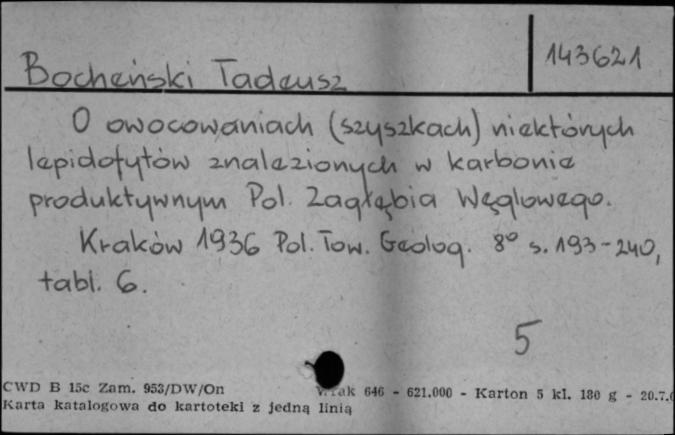 143621
Bocheński Tadeusz
O owocowaniach (szyszkach) niektórych
lepidofytów znalezionych w karbonie
produktywnym Pol. Zagłębia Węglowego.
Kraków 1936 Pol. Tow. Geolog. 8° s. 193-240,
tabl. 6.
5
CWD B 15c Zam. 953/DW/On 646 - 621.000 - Karton 5 kl. 180 g - 20.7.
Karta katalogowa do kartoteki z jedną linią